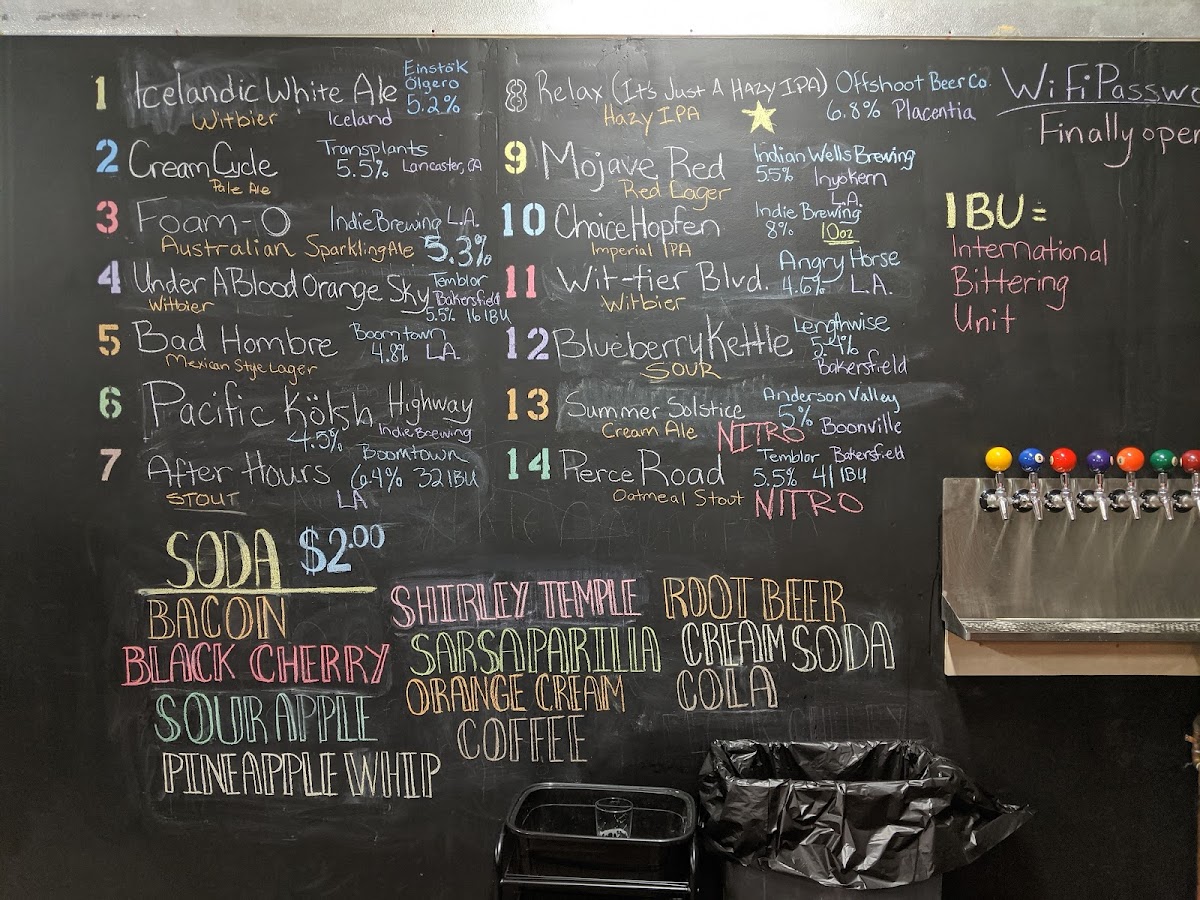 1 Icelandic White Ale Einstök Ölgero 5.2%
Witbier Iceland
2 Cream Cycle Transplants 5.5% Lancaster, CA
Pale Ale
3 Foam-O Indie Brewing L.A.
Australian Sparkling Ale 5.3%
4 Under A Blood Orange Sky Temblor Bakersfield
Witbier 5.5% 16 IBU
5 Bad Hombre Boomtown 4.8% LA.
Mexican Stye Lager
6 Pacific Kölsh Highway
4.5% Indie Brewing
7 After Hours Boomtown 6.4% 32 IBU
STOUT LA
8 Relax (It's Just A Hazy IPA) Offshoot Beer Co.
Hazy IPA 6.8% Placentia
9 Mojave Red Indian Wells Brewing
Red Lager 5.5% Inyokern
10 Choice Hopfen Indie Brewing L.A.
Imperial IPA 8% 10oz
11 Wit-tier Blvd. Angry Horse
Witbier 4.6% L.A.
12 Blueberry Kettle Lengthwise
SOUR Bakersfield
13 Summer Solstice Anderson Valley 5%
Cream Ale NITRO Boonville
14 Pierce Road Temblor Bakersfield
5.5% 41 IBU
Oatmeal Stout NITRO
WiFi
Finally
IBU =
International
Bittering
Unit
SODA $2.00
BACON
BLACK CHERRY
SOUR APPLE
PINEAPPLE WHIP
SHIRLEY TEMPLE
SARSAPARILLA
ORANGE CREAM
COFFEE
ROOT BEER
CREAM SODA
COLA